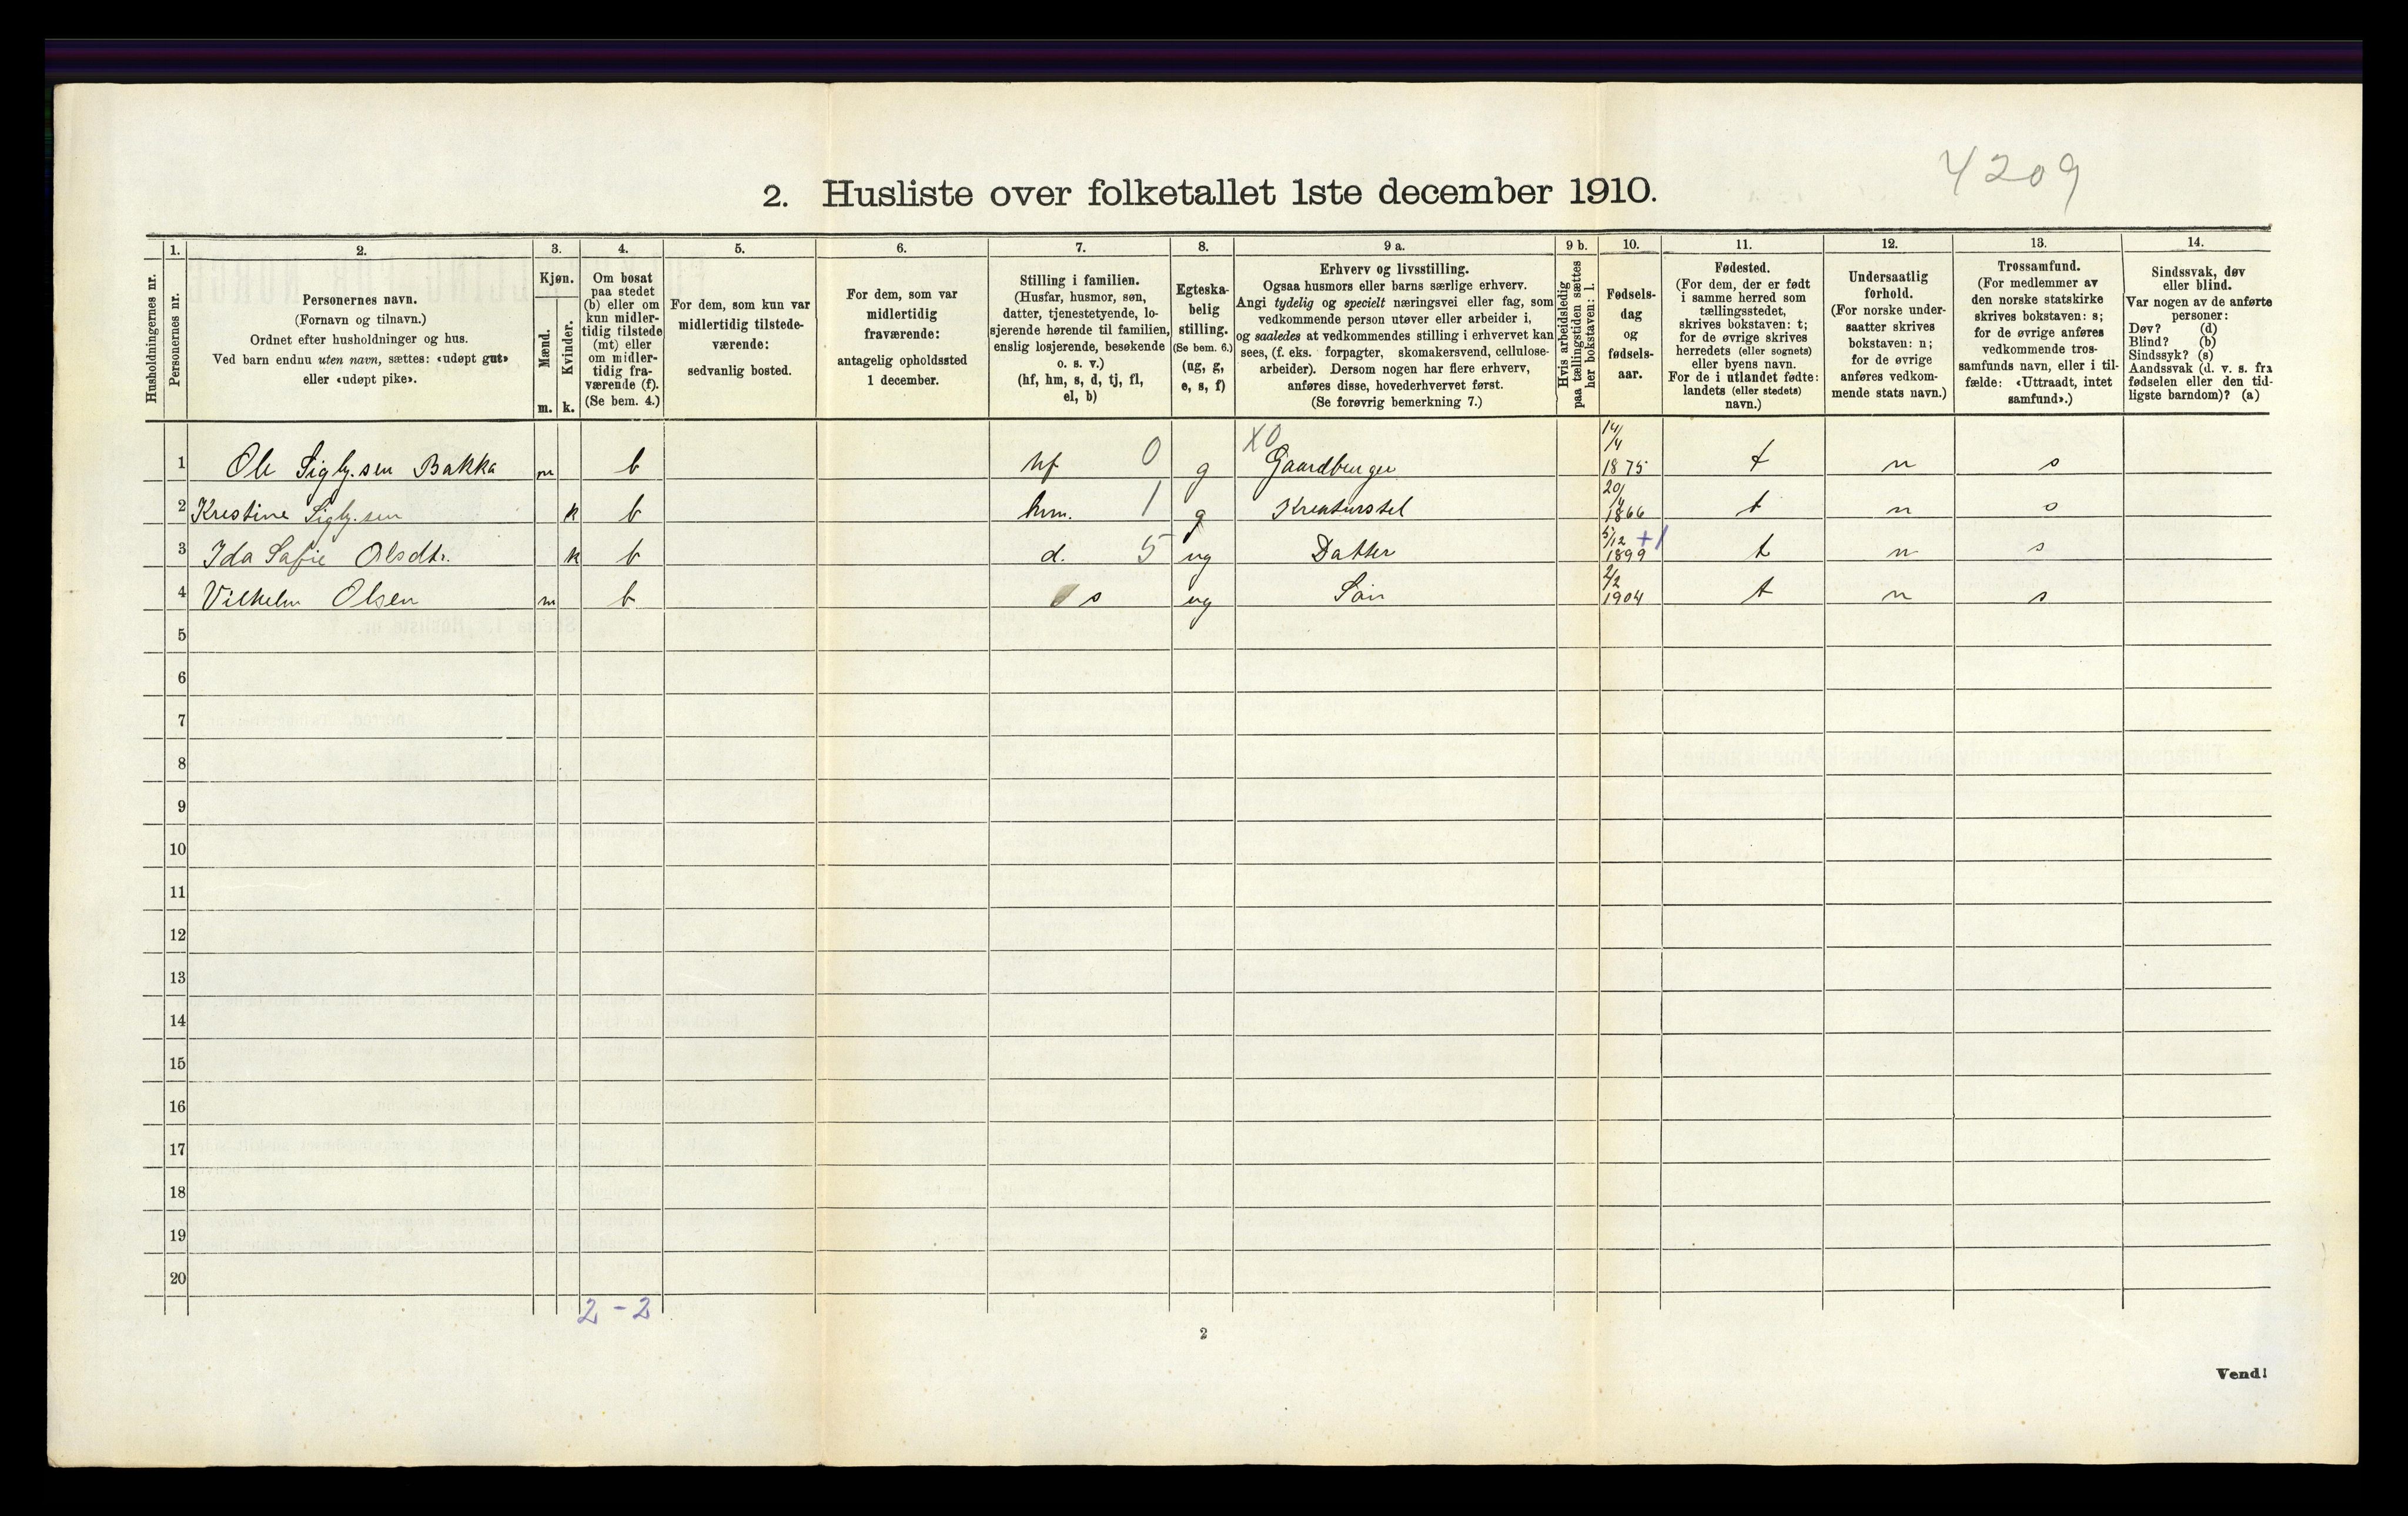 4209
2. Husliste over folketallet 1ste december 1910.
Husholdningernes nr.
1.
Personernes nr.
2.
Personernes navn.
(Fornavn og tilnavn.)
Ordnet efter husholdninger og hus.
Ved barn endnu uten navn, sættes: «udøpt gut»
eller «udøpt pike».
3.
Kjøn.
Mænd.
Kvinder.
m. k.
4.
Om bosat
paa stedet
(b) eller om
kun midler-
tidig tilstede
(mt) eller
om midler-
tidig fra-
værende (f).
(Se bem. 4.)
5.
For dem, som kun var
midlertidig tilstede-
værende:
sedvanlig bosted.
6.
For dem, som var
midlertidig
fraværende:
antagelig opholdssted
1 december.
7.
Stilling i familien.
(Husfar, husmor, søn,
datter, tjenestetyende, lo-
sjerende hørende til familien,
enslig losjerende, besøkende
o. s. v.)
(hf, hm, s, d, tj, fl,
el, b)
8.
Egteska-
belig
stilling.
(Se bem. 6.)
(ug, g,
e, s, f)
9 a.
Erhverv og livsstilling.
Ogsaa husmors eller barns særlige erhverv.
Angi tydelig og specielt næringsvei eller fag, som
vedkommende person utøver eller arbeider i,
og saaledes at vedkommendes stilling i erhvervet kan
sees, (f. eks. forpagter, skomakersvend, cellulose-
arbeider). Dersom nogen har flere erhverv,
anføres disse, hovederhvervet først.
(Se forøvrig bemerkning 7.)
9 b.
Hvis arbeidsledig
paa tællingstiden sættes
her bokstaven: l.
10.
Fødsels-
dag
og
fødsels-
aar.
11.
Fødested.
(For dem, der er født
i samme herred som
tællingsstedet,
skrives bokstaven: t;
for de øvrige skrives
herredets (eller sognets)
eller byens navn.
For de i utlandet fødte:
landets (eller stedets)
navn.)
12.
Undersaatlig
forhold.
(For norske under-
saatter skrives
bokstaven: n;
for de øvrige
anføres vedkom-
mende stats navn.)
13.
Trossamfund.
(For medlemmer av
den norske statskirke
skrives bokstaven: s;
for de øvrige anføres
vedkommende tros-
samfunds navn, eller i til-
fælde: «Uttraadt, intet
samfund».)
14.
Sindssvak, døv
eller blind.
Var nogen av de anførte
personer:
Døv? (d)
Blind? (b)
Sindssyk? (s)
Aandssvak (d. v. s. fra
fødselen eller den tid-
ligste barndom)? (a)
1 Ole Sigby.sen Bakka m b hf 0 g X0 Gaardbruger 14/4 1875 t n s
2 Krestine Sigby.sen k b hm. 1 g Kreaturstel 20/4 1866 t n s
3 Ida Safie Olsdtr. k b d. 5 ug Datter 5/12 +1 1899 t n s
4 Vilhelm Olsen m b s ug Søn 2/2 1904 t n s
5
6
7
8
9
10
11
12
13
14
15
16
17
18
19
20
2 - 2
2
Vend!